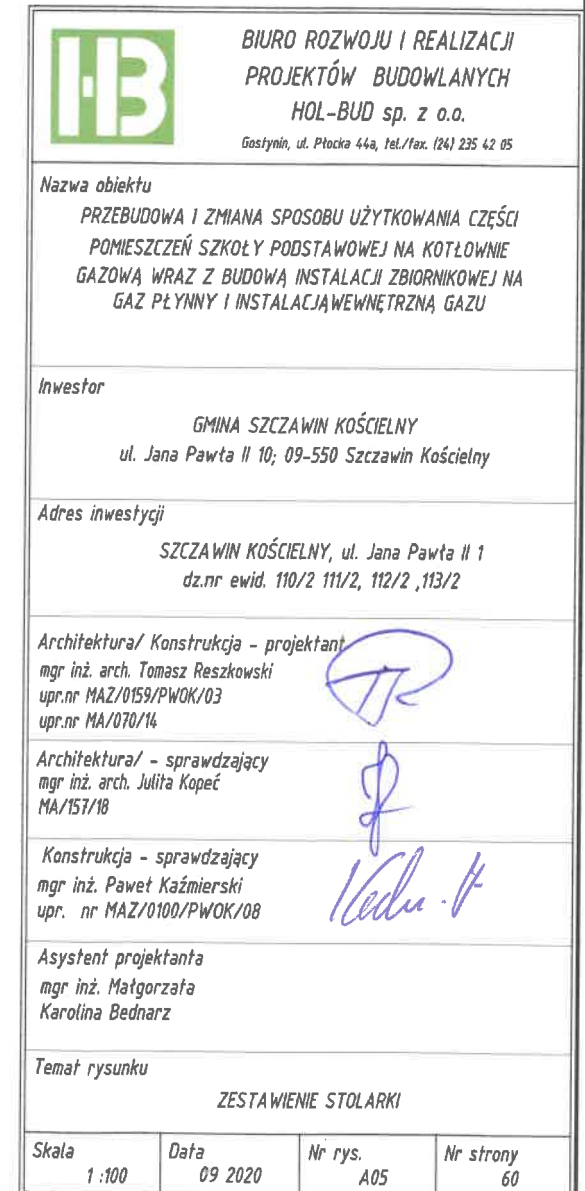 HB
BIURO ROZWOJU I REALIZACJI
PROJEKTÓW BUDOWLANYCH
HOL-BUD sp. z o.o.
Gostynin, ul. Płocka 44a, tel./fax. (24) 235 42 05
Nazwa obiektu
PRZEBUDOWA I ZMIANA SPOSOBU UŻYTKOWANIA CZĘŚCI
POMIESZCZEŃ SZKOŁY PODSTAWOWEJ NA KOTŁOWNIE
GAZOWĄ WRAZ Z BUDOWĄ INSTALACJI ZBIORNIKOWEJ NA
GAZ PŁYNNY I INSTALACJĄWEWNĘTRZNĄ GAZU
Inwestor
GMINA SZCZAWIN KOŚCIELNY
ul. Jana Pawła II 10; 09-550 Szczawin Kościelny
Adres inwestycji
SZCZAWIN KOŚCIELNY, ul. Jana Pawła II 1
dz.nr ewid. 110/2 111/2, 112/2 ,113/2
Architektura/ Konstrukcja - projektant
mgr inż. arch. Tomasz Reszkowski
upr.nr MAZ/0159/PWOK/03
upr.nr MA/070/14
Architektura/ - sprawdzający
mgr inż. arch. Julita Kopeć
MA/157/18
Konstrukcja - sprawdzający
mgr inż. Paweł Kaźmierski
upr. nr MAZ/0100/PWOK/08
Asystent projektanta
mgr inż. Małgorzata
Karolina Bednarz
Temat rysunku
ZESTAWIENIE STOLARKI
Skala
1 :100
Data
09 2020
Nr rys.
A05
Nr strony
60